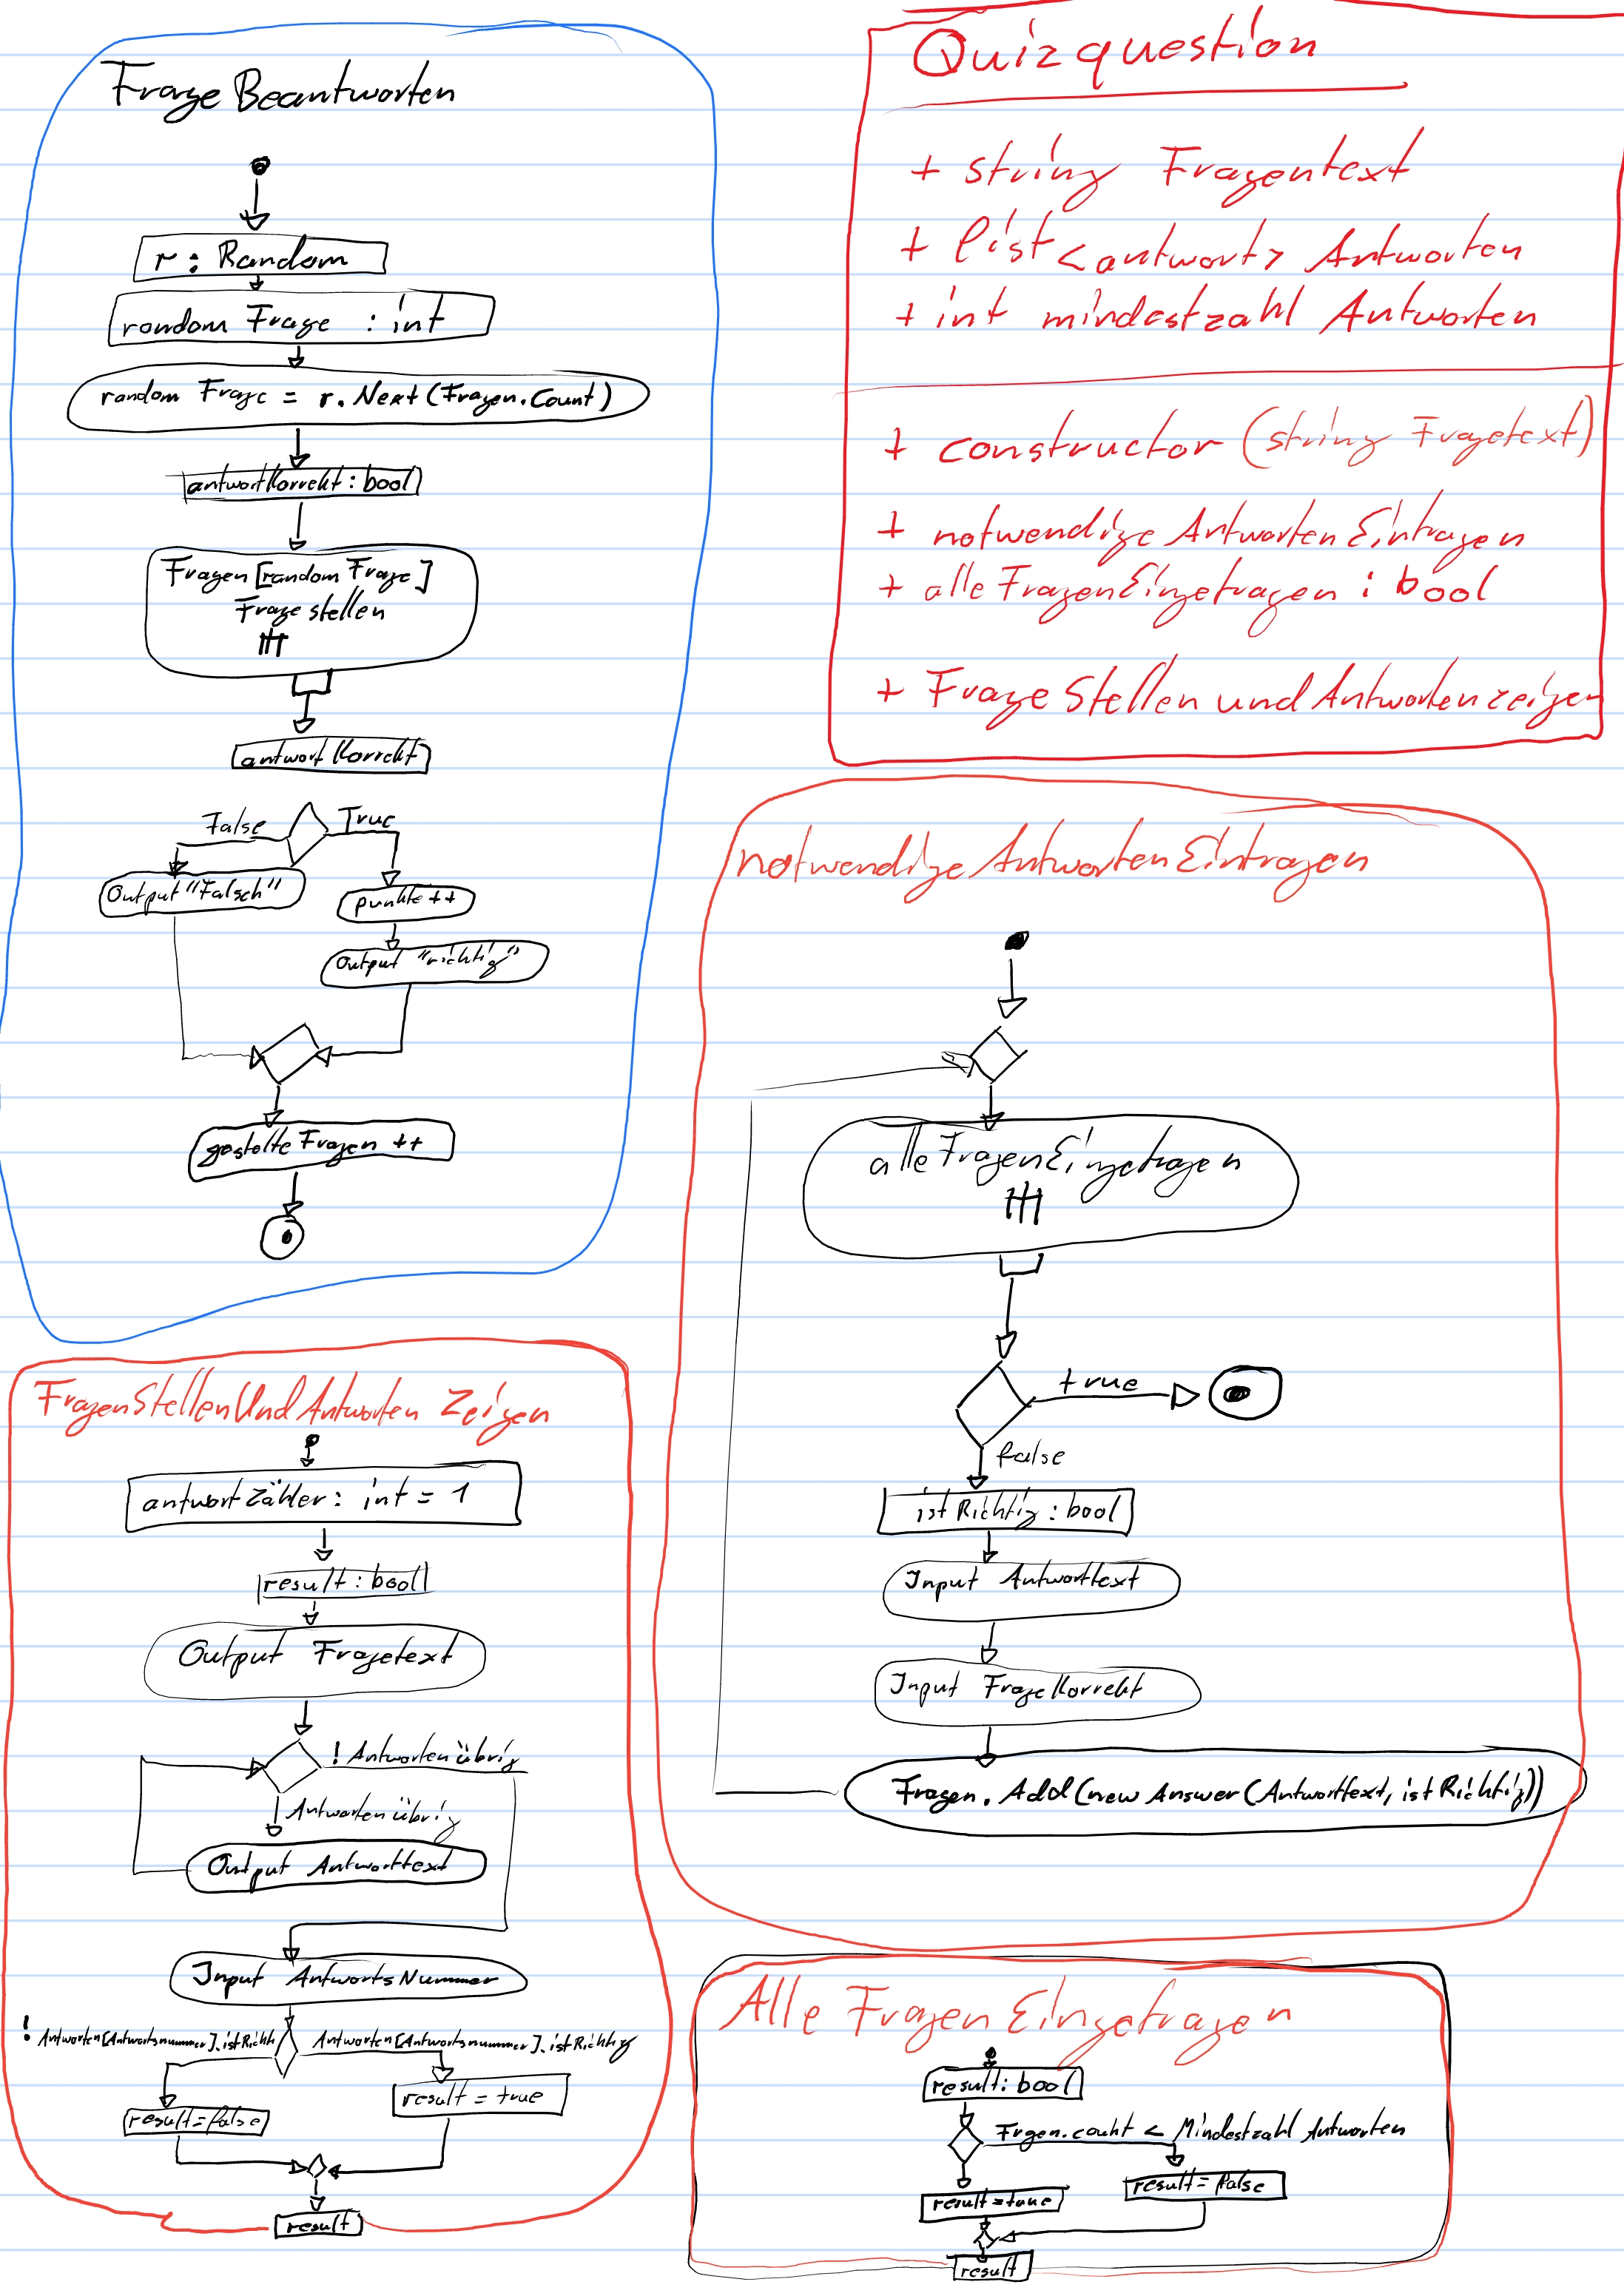 Frage Beantworten
r : Random
random Frage : int
random Frage = r. Next (Fragen. Count)
antwortKorrekt : bool
Fragen [random Frage]
Frage stellen
antwort Korrekt
False
True
Output "Falsch"
punkte ++
Output "richtig"
gestellte Fragen ++
Quizquestion
+ string Fragentext
+ list <antwort> Antworten
+ int mindestzahl Antworten
+ constructor (string Fragetext)
+ notwendige Antworten Eintragen
+ alle Fragen Eingetragen : bool
+ Frage Stellen und Antworten zeigen
notwendige Antworten Eintragen
alle Fragen Eingetragen
true
false
ist Richtig : bool
Input Antworttext
Input Frage Korrekt
Fragen. Add (new Answer (Antworttext, ist Richtig))
Fragen Stellen Und Antworten Zeigen
antwort Zähler : int = 1
result : bool
Output Fragetext
! Antworten übrig
Antworten übrig
Output Antworttext
Input Antworts Nummer
! Antworten [Antwortsnummer]. ist Richti
Antworten [Antwortsnummer]. ist Richtig
result = false
result = true
result
Alle Fragen Eingetragen
result : bool
Frgen. count < Mindestzahl Antworten
result = true
result = false
result